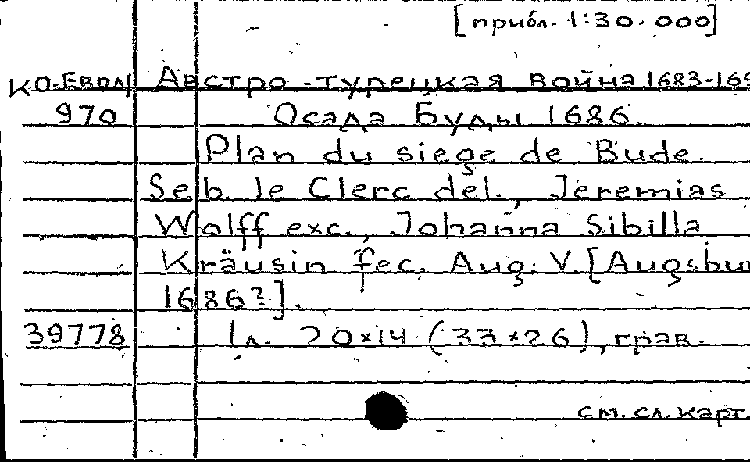 [прибл. 1:30.000]
Ко-Евр/ Австро-турецкая война 1683-169
970 Осада Буды 1686.
Plan du siege de Bude.
Seb. le Clerc del., Jeremias
Wolff exc., Johanna Sibilla
Kräusin fec. Aug. V. [Augsbu
1686?].
39778 1 л. 20×14 (33×26), грав.
см. сл. карт.